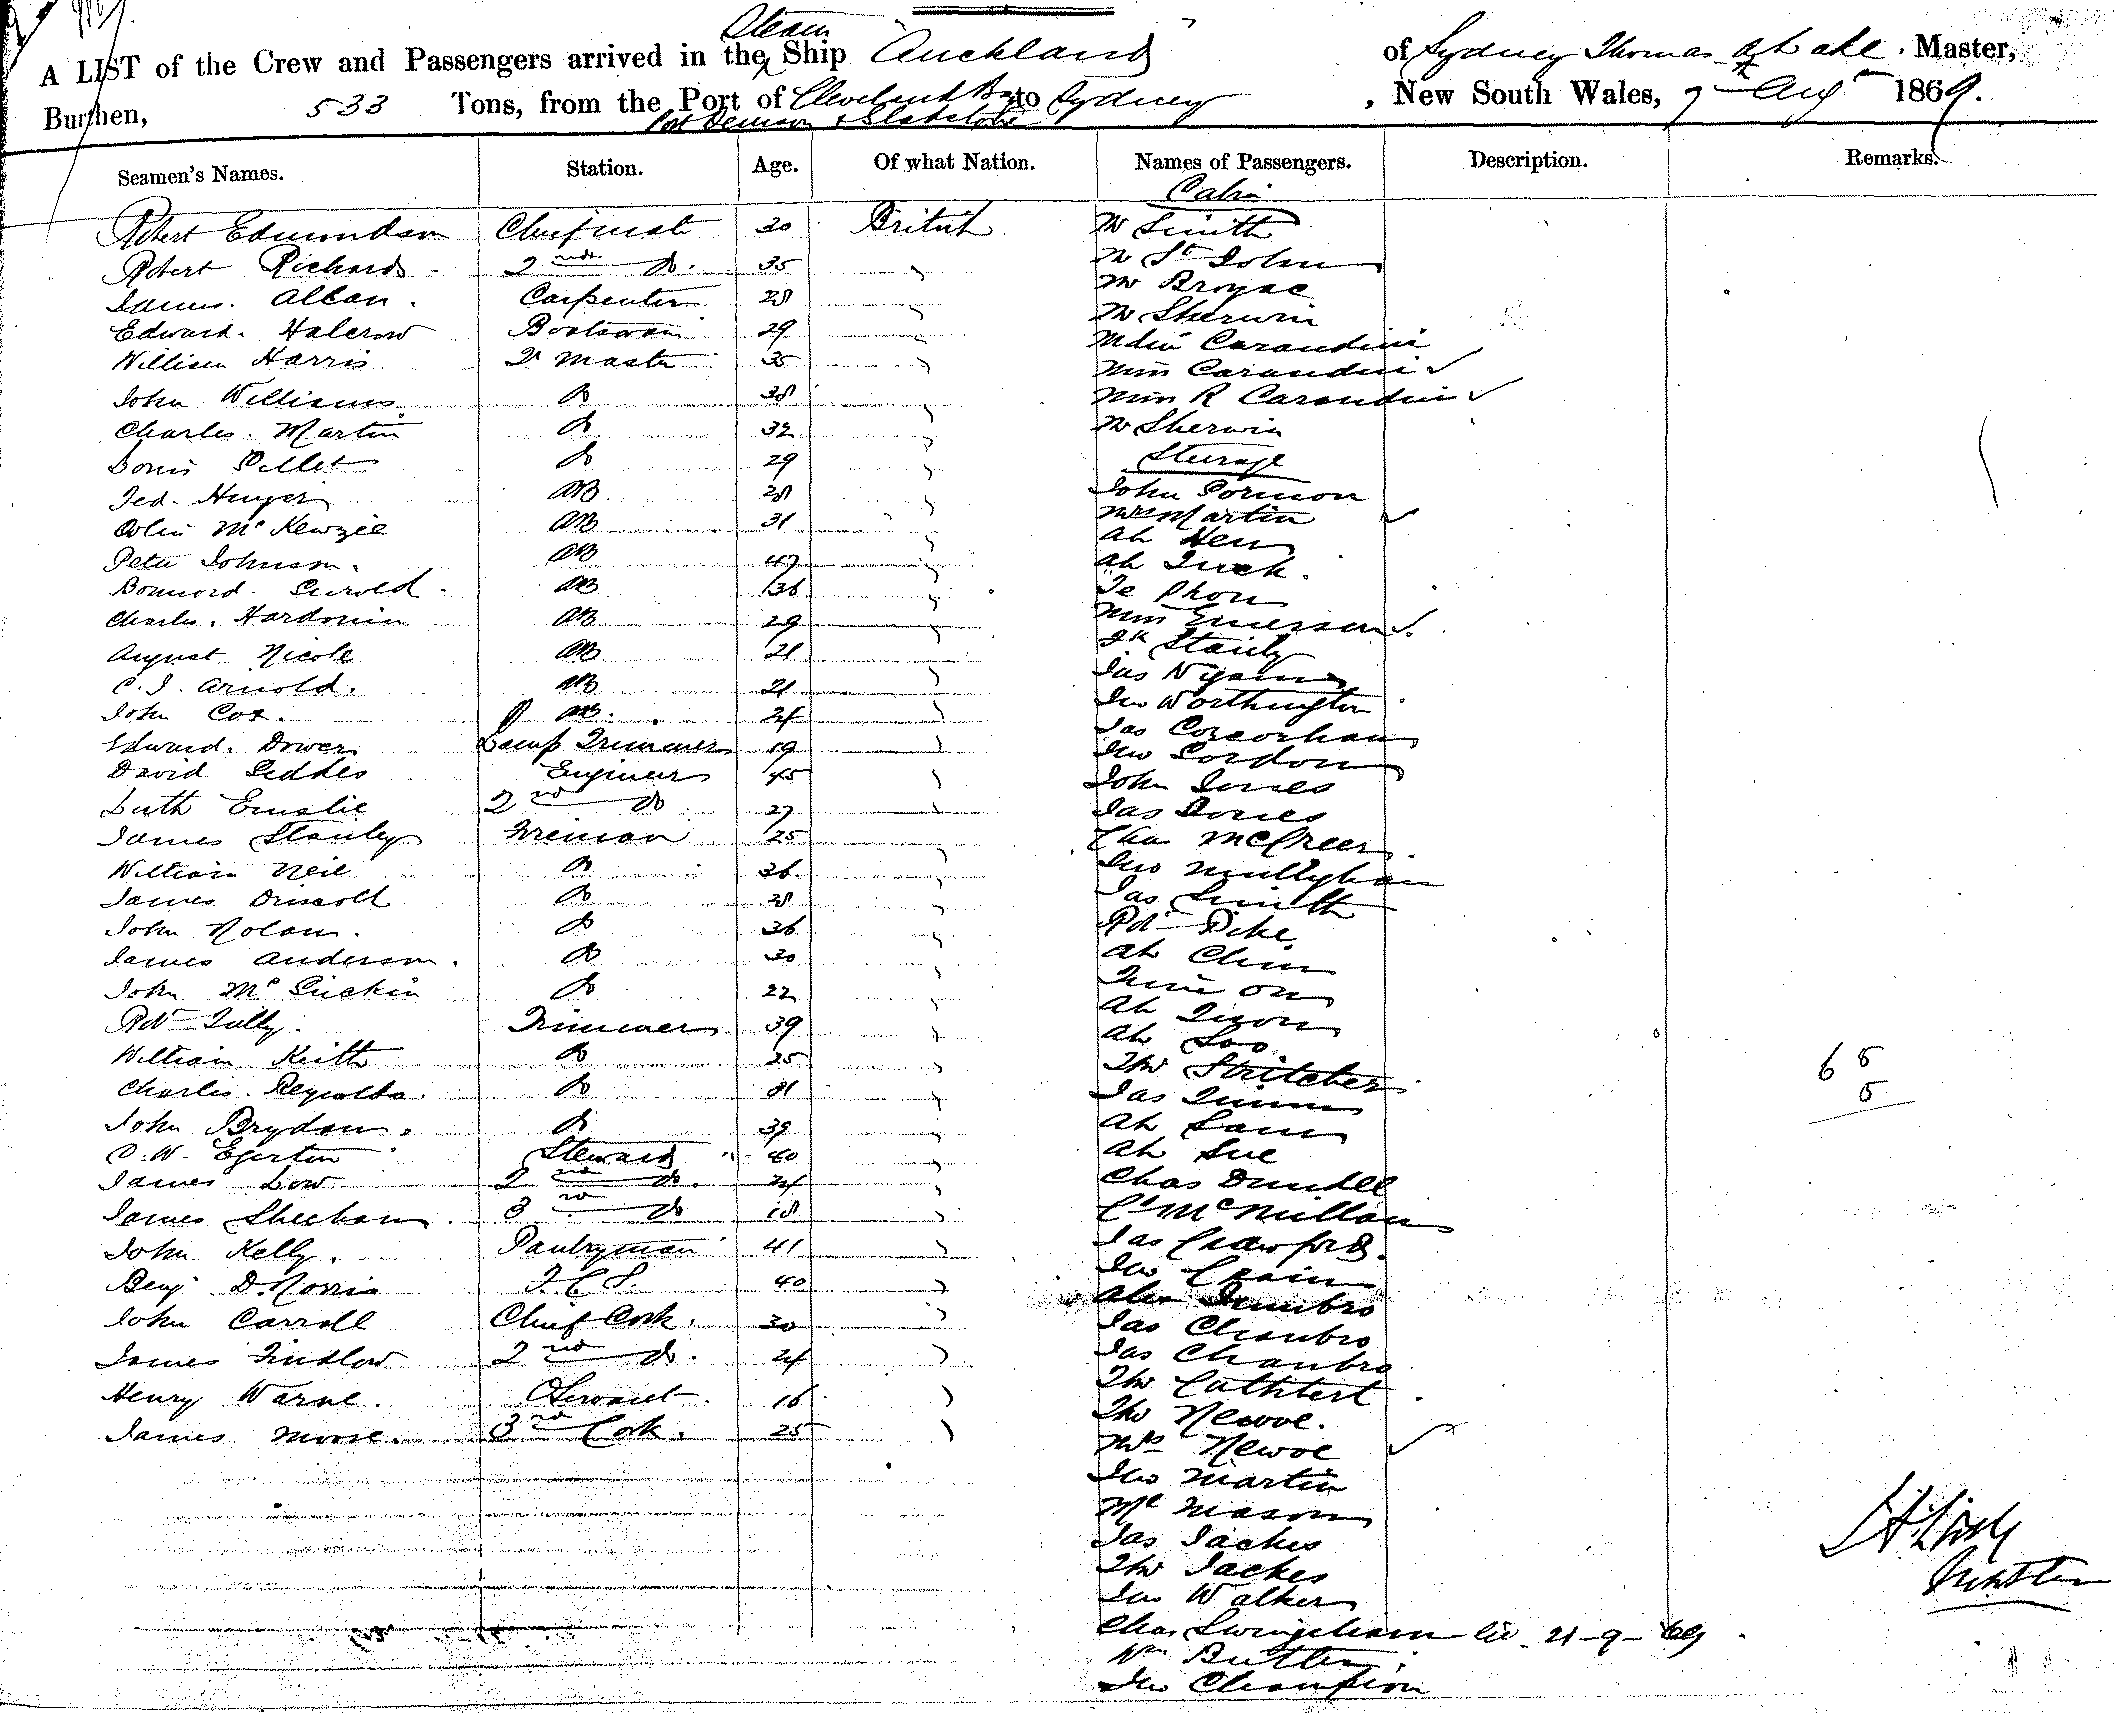 Steam
A LIST of the Crew and Passengers arrived in the Ship "Auckland" of Sydney Thomas Master,
Burthen, 533 Tons, from the Port of Cleveland Bay to Sydney, New South Wales, 7th Aug 1869.
Port Denison &
Seamen's Names. Station. Age. Of what Nation. Names of Passengers. Description. Remarks.
Cabin
Robert Edmundson Chief mate 30 British Mr Smith
Robert Richards 2nd Do. 35 " Mr St John
James Allan Carpenter 28 " Mr
Edward Halcrow Boatswain 29 " Mr Sherwin
William Harris Qr Master 35 " Mdm Carandini
John Williams Do 38 " Miss Carandini ✓
Charles Martin Do 32 " Miss R Carandini ✓
Louis Do 29 " Mr Sherwin
Steerage
AB 28 " John
Colin McKenzie AB 31 " Mrs Martin ✓
Peter Johnson AB 47 " Ah Hen
AB 36 " Ah
Charles Hardonin AB 29 "
August Nicole AB 21 " Miss Emerson ✓
C. J. Arnold AB 21 "
John Cox AB 24 " Jas
Edward Dower Lamp Trimmer 19 " Jno Worthington
David Geddes Engineer 45 " Jas Corcorhan
Emslie 2nd Do 27 " Jno Gordon
James Stanley Fireman 25 " John Jones
William Neil Do 36 " Jas Jones
James Driscoll Do 28 " McGreer
John Nolan Do 36 " Jno Mullyhan
James Anderson Do 30 " Jas Smith
John Mc Do 22 " Rd Pike
Rd Tully Trimmer 39 " Ah Chin
William Keith Do 25 " on
Charles Reynolds Do 31 " Ah
John Brydon Do 39 " Ah Soo
C. W. Egerton Steward 40 " Tho Stritcher
James Low 2nd Do. 24 " Jas Quinn
James Sheehan 3rd Do 18 " Ah Sam
John Kelly Pantryman 41 " Ah Sue
Benj D. Norris F.C.S. 40 " Chas Dundee
John Carroll Chief Cook. 30 " McMillan
James Findlow 2nd Do. 24 " Jas Crawford
Henry Warne Servant 16 " Jno Crain
James Moore 3rd Cook. 25 " Alex
Jas Chambro
Jas Chambro
Tho Cuthbert
Tho Newoe.
Mrs Newoe ✓
Jno Martin
Mason
Jas Jackes
Tho Jackes
Jno Walker
Chas Swingeham 21-9-69
Wm Butler
Jno Champion
65
5
Master